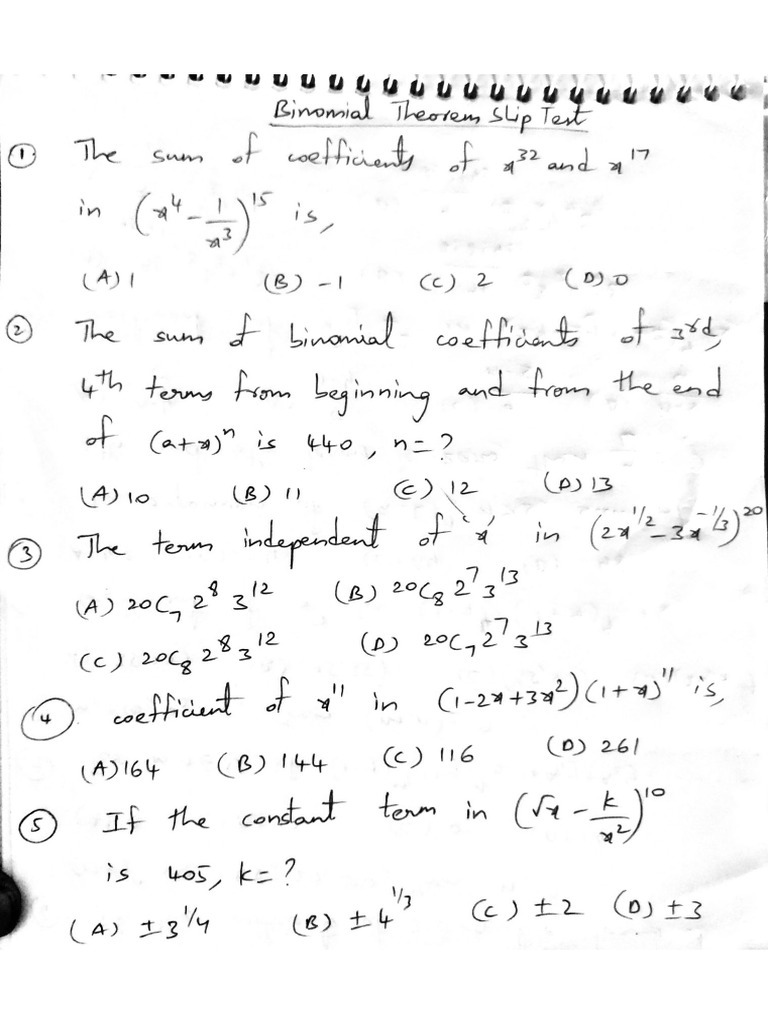 Binomial Theorem Slip Test
① The sum of coefficients of x³² and x¹⁷
in (x⁴ - 1/x³)¹⁵ is,
(A) 1 (B) -1 (C) 2 (D) 0
② The sum of binomial coefficients of 3rd,
4th terms from beginning and from the end
of (a+x)ⁿ is 440, n=?
(A) 10 (B) 11 (C) 12 (D) 13
③ The term independent of 'x' in (2x^1/2 - 3x^-1/3)²⁰
(A) 20C₇ 2⁸ 3¹² (B) 20C₈ 2⁷ 3¹³
(C) 20C₈ 2⁸ 3¹² (D) 20C₇ 2⁷ 3¹³
④ coefficient of x¹¹ in (1-2x+3x²)(1+x)¹¹ is,
(A) 164 (B) 144 (C) 116 (D) 261
⑤ If the constant term in (√x - k/x²)¹⁰
is 405, k=?
(A) ±3^1/4 (B) ±4^1/3 (C) ±2 (D) ±3